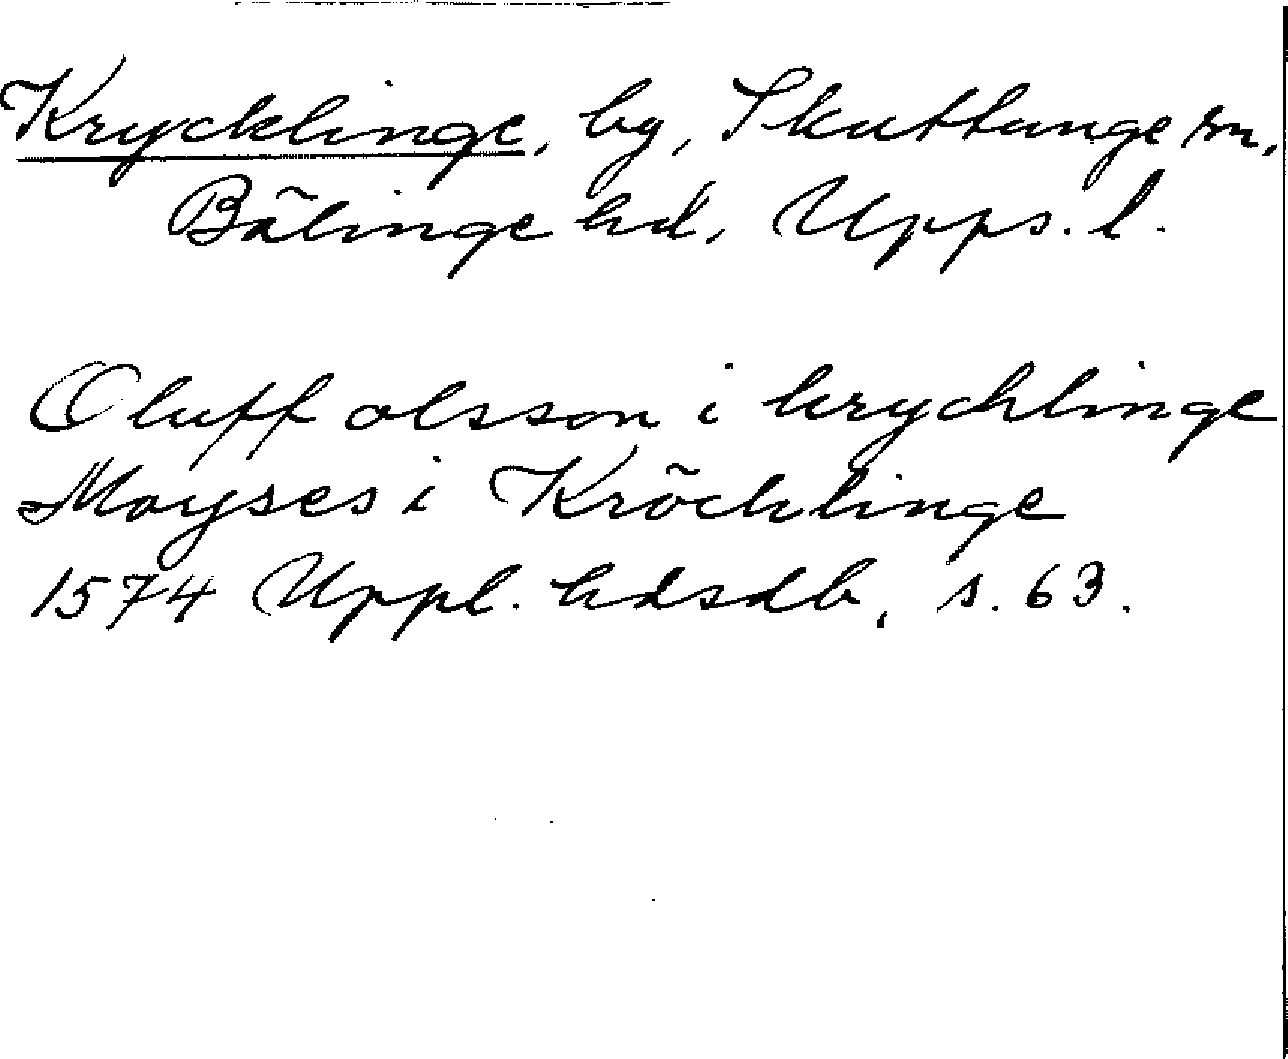 Krycklinge, by, Skuttunge sn,
Bälinge hd, Upps. l.
Oluff olsson i krychlinge
Moyses i Kröchlinge
1574 Uppl. hdsdb, s. 63.